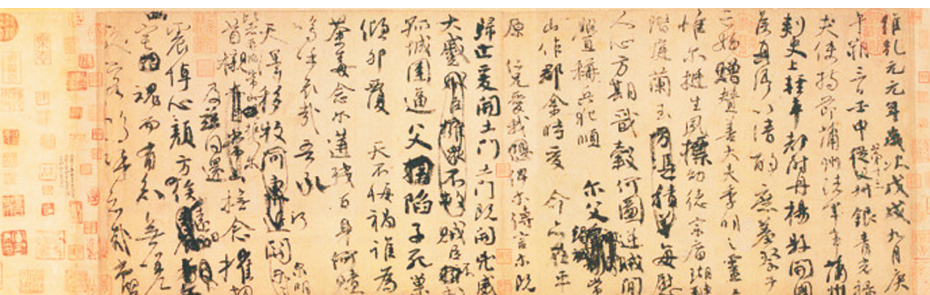 維乾元元年歲次戊戌九月庚
午朔三日壬申從父銀青光祿
夫使持節蒲州諸軍事蒲州
刺史上輕車都尉丹楊縣開國
侯真卿以清酌庶羞祭于
亡姪贈贊善大夫季明之靈
惟爾挺生夙標幼德宗廟瑚
階庭蘭玉方憑積善每慰
人心方期戩穀何圖逆賊閒
釁稱兵犯順爾父常
山作郡余時受命亦在平
原仁兄愛我俾爾傳言爾既
歸止爰開土門土門既開凶威
大蹙賊臣擁眾不救
孤城圍逼父陷子死巢
傾卵覆天不悔禍誰為
荼毒念爾遘殘百身何贖
嗚乎哀哉吾承
天澤移牧河關爾明
首櫬及茲同還撫念摧切
震悼心顏方俟
宅魂而有知無嗟
久客嗚呼哀哉尚饗